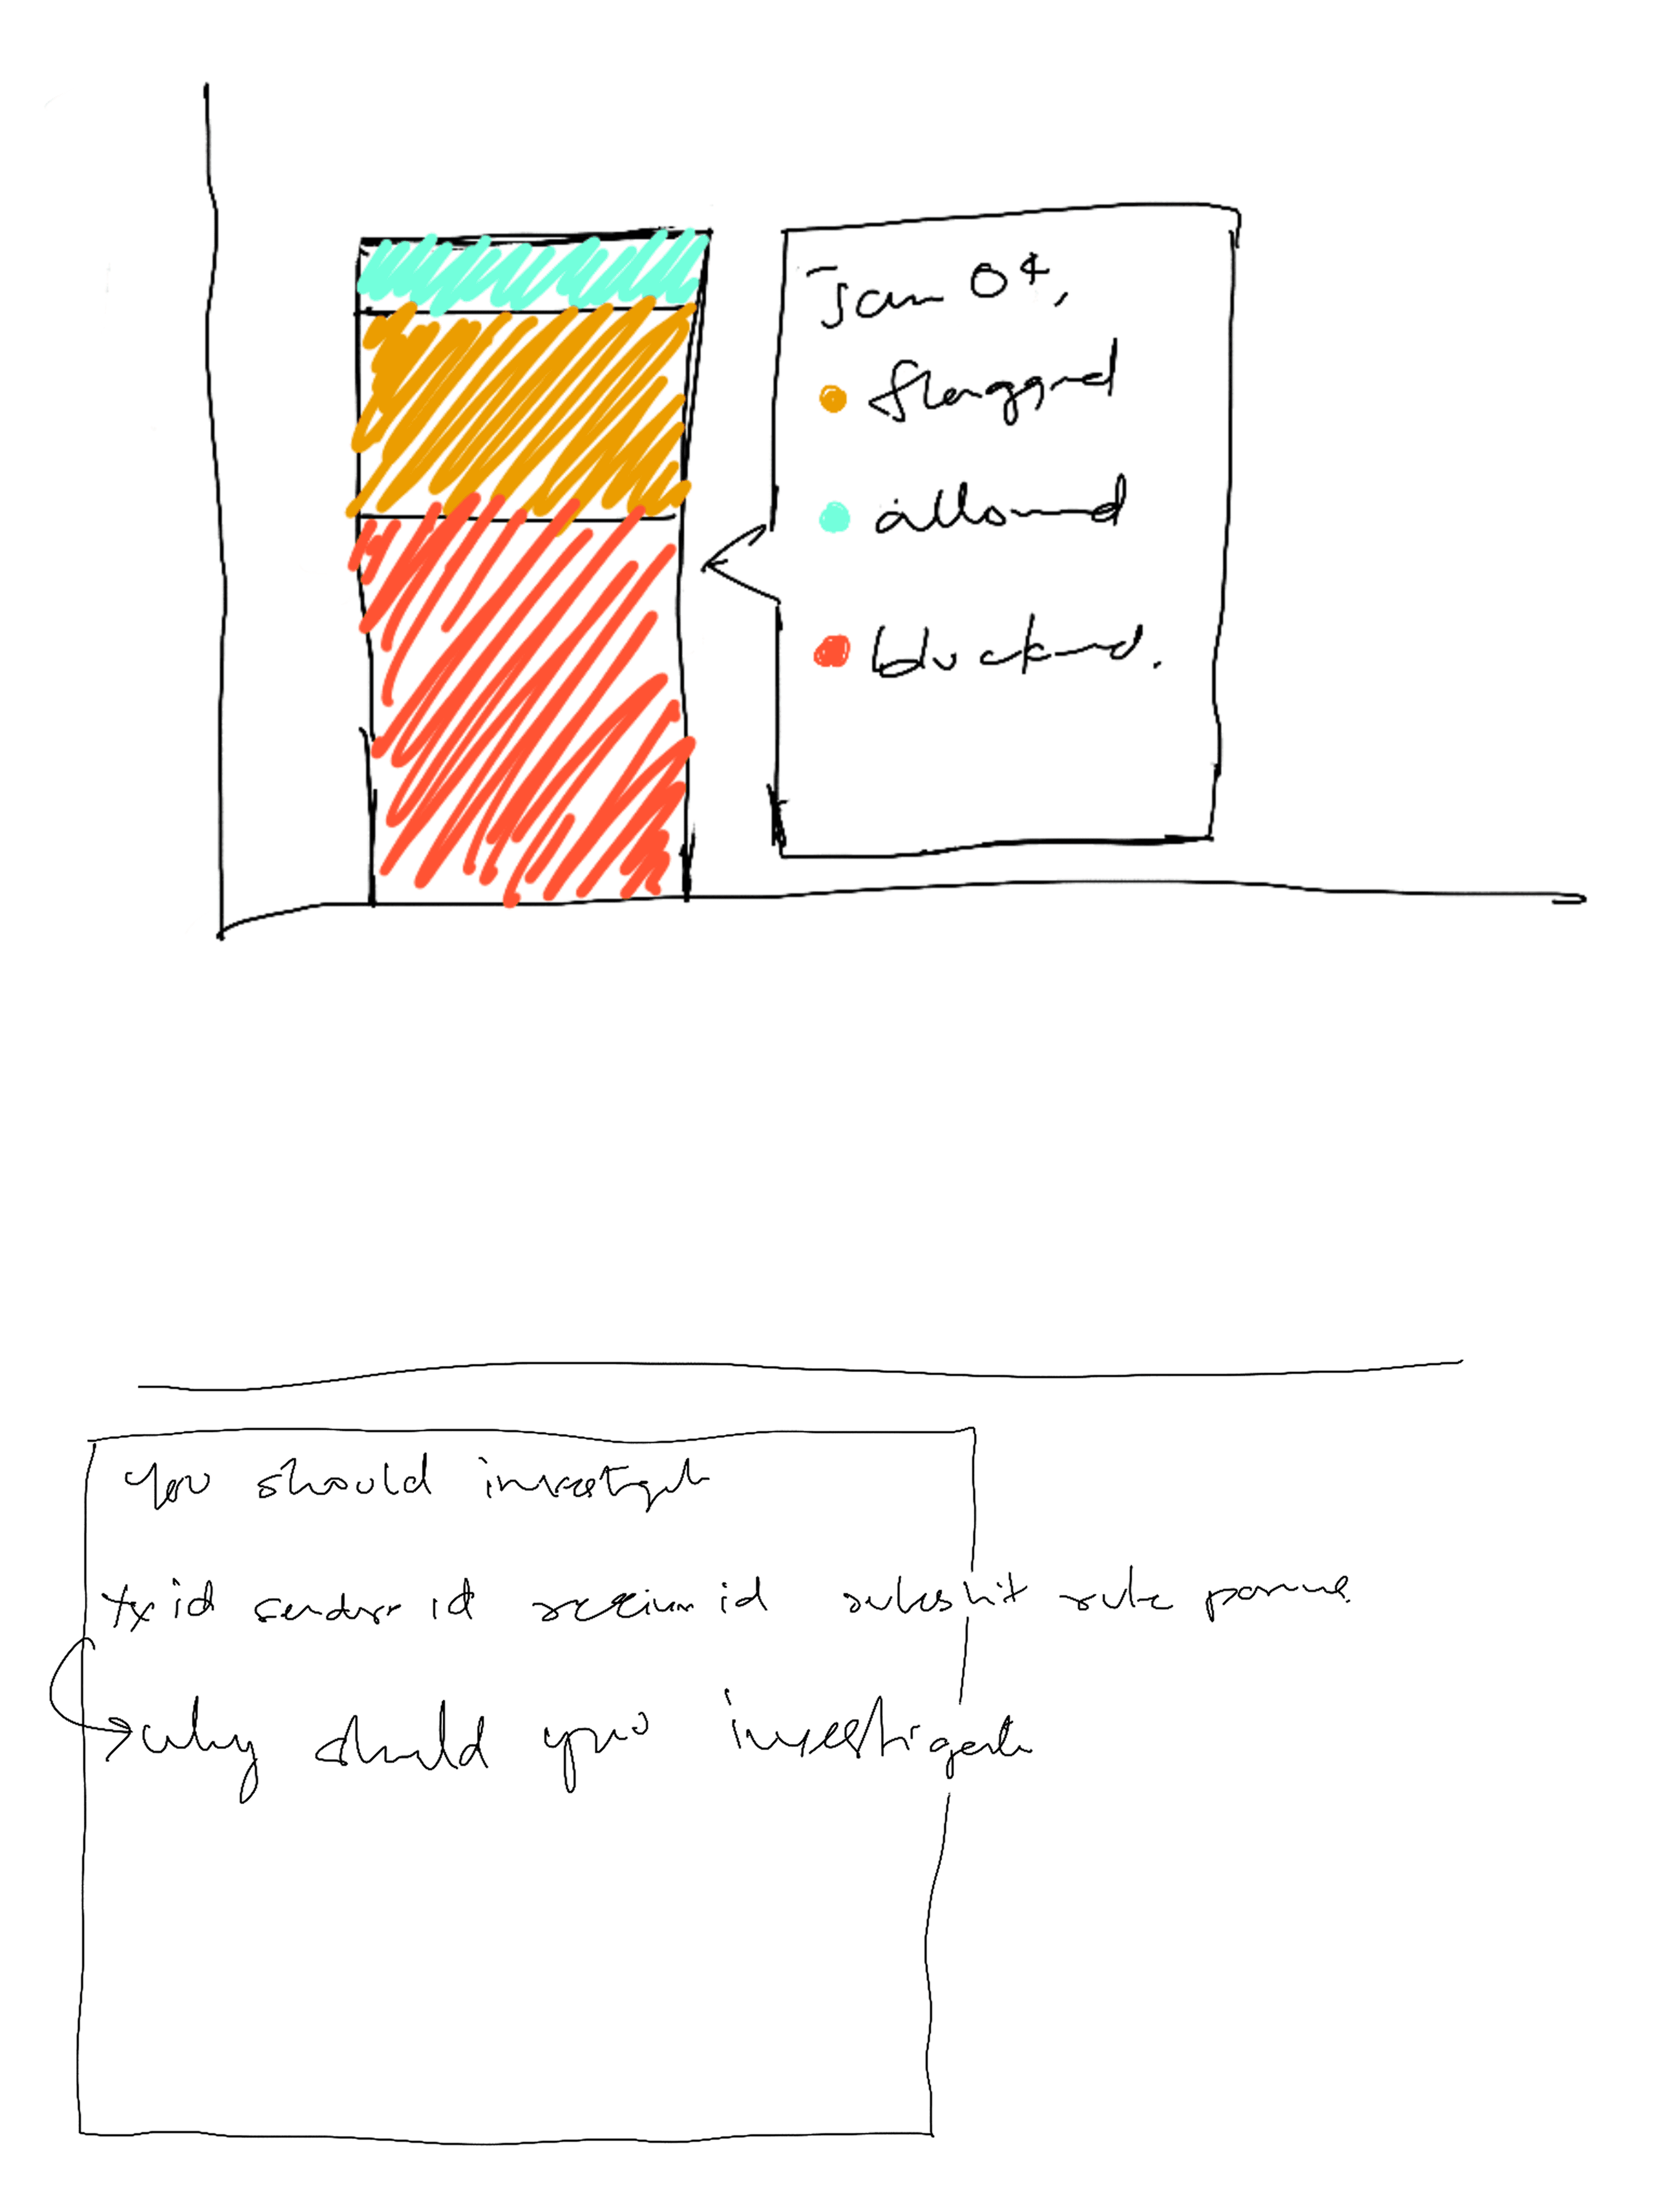 Jan 04,
flagged
allowed
blocked.
you should investigate
txid sender id receiver id rules hit rule
why should you investigate